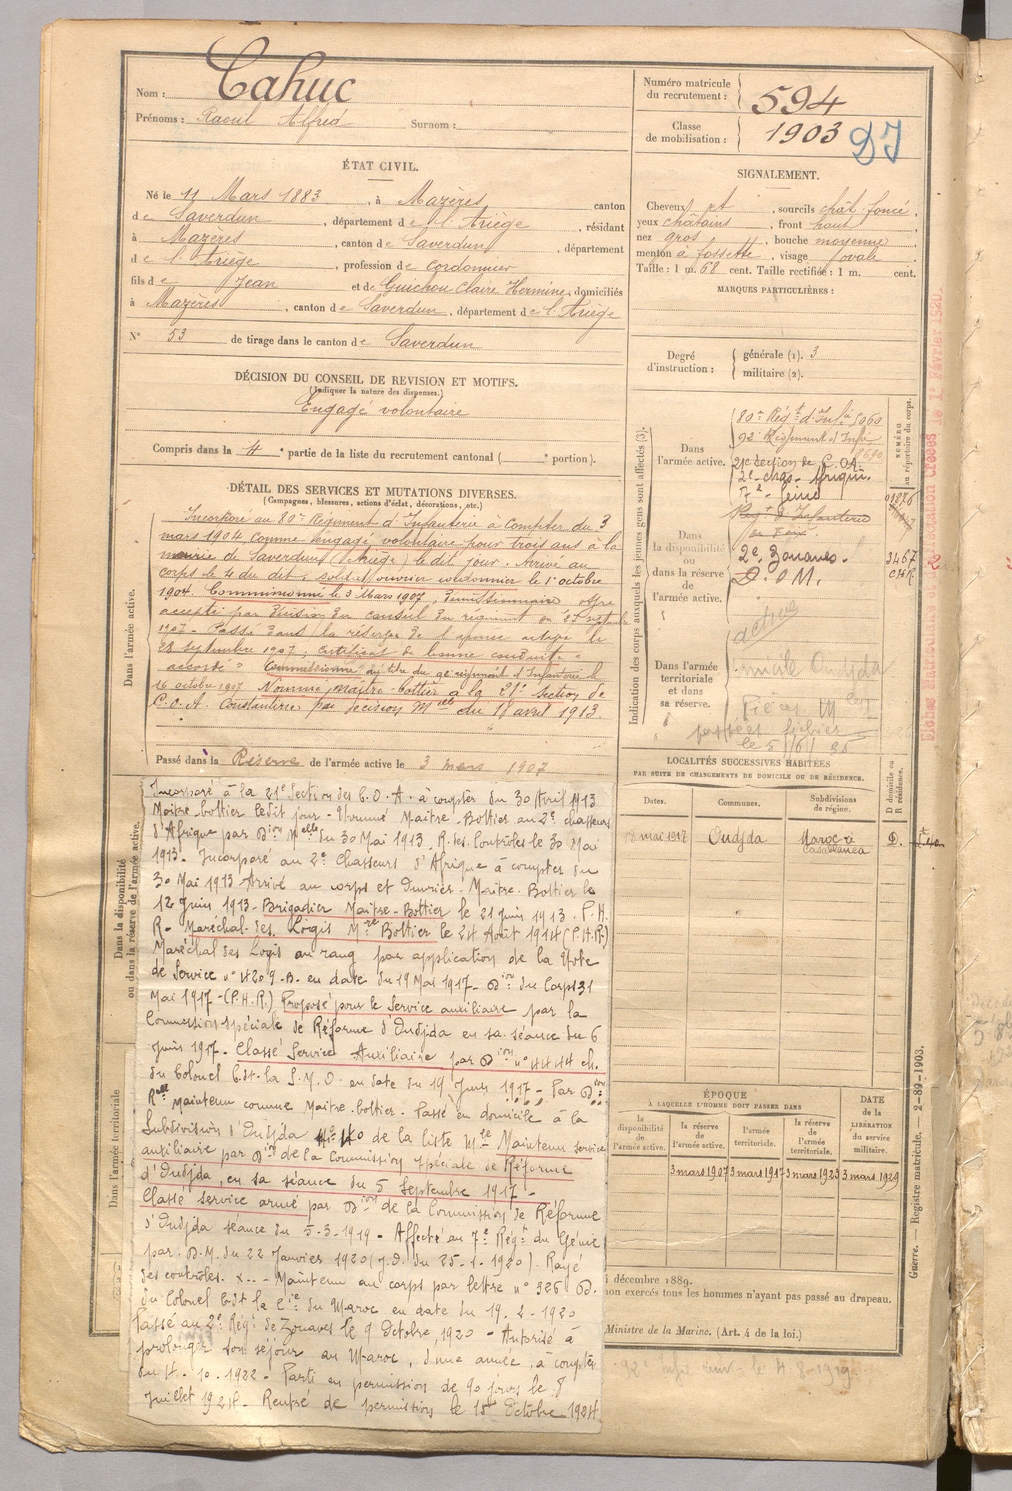 Nom : Cahuc
Prénoms : Raoul Alfred Surnom :
Numéro matricule du recrutement : 594
Classe de mobilisation : 1903
DJ
ÉTAT CIVIL.
Né le 11 Mars 1883, à Mazères canton
de Saverdun, département de l'Ariège, résidant
à Mazères, canton de Saverdun, département
de l'Ariège, profession de cordonnier
fils de Jean et de Guichou Claire Hermine, domiciliés
à Mazères, canton de Saverdun, département de l'Ariège
N° 53 de tirage dans le canton de Saverdun
SIGNALEMENT.
Cheveux et, sourcils chât. foncé,
yeux châtains, front haut,
nez gros, bouche moyenne,
menton à fossette, visage ovale.
Taille : 1 m. 68 cent. Taille rectifiée : 1 m. cent.
MARQUES PARTICULIÈRES :
Degré d'instruction : générale (1). 3
militaire (2).
DÉCISION DU CONSEIL DE REVISION ET MOTIFS.
(Indiquer la nature des dispenses.)
Engagé volontaire
Compris dans la 4e partie de la liste du recrutement cantonal ( e portion).
DÉTAIL DES SERVICES ET MUTATIONS DIVERSES.
(Campagnes, blessures, actions d'éclat, décorations, etc.)
Dans l'armée active.
Incorporé au 80e Régiment d'Infanterie à compter du 3
mars 1904 comme engagé volontaire pour trois ans à la
mairie de Saverdun (Ariège) le dit jour. Arrivé au
corps le 4 du dit, soldat ouvrier cordonnier le 1er octobre
1904. Commissionné le 3 Mars 1907, démissionnaire offre
acceptée par décision du conseil du régiment du 27 septembre
1907 - Passé dans la réserve de l'armée active le
28 septembre 1907, certificat de bonne conduite "
accordé " Commissionné au titre du 92 régiment d'Infanterie le
16 octobre 1907 Nommé maître-bottier à la 21e Section de
C.O.A. Constantine par décision Mlle du 18 avril 1913.
Passé dans la Réserve de l'armée active le 3 mars 1907
Indication des corps auxquels les jeunes gens sont affectés (3).
NUMÉRO au répertoire du corps.
Dans l'armée active.
80e Régt d'Infie à 5060
92e Régiment d'Infie 8690
21e Section de C.O.A.
2e chas. Afrique.
7e Génie
Régt d'Infanterie
Dans la disponibilité ou dans la réserve de l'armée active.
2e Zouaves. 3467
D.O.M.
active
Dans l'armée territoriale et dans sa réserve.
Oudjda
Fiches Mles
passées fichier
Dans la disponibilité ou dans la réserve de l'armée active.
Incorporé à la 21e Section des C.O.A. à compter du 30 Avril 1913
Maître-bottier ledit jour - Nommé Maître-Bottier au 2e chasseurs
d'Afrique par Don Mlle du 30 Mai 1913. R. des Contrôles le 30 Mai
1913 - Incorporé au 2e Chasseurs d'Afrique à compter du
30 Mai 1913 Arrivé au corps et Ouvrier Maître-Bottier le
12 Juin 1913 - Brigadier Maître-Bottier le 21 Juin 1913. P.H.
R - Maréchal des Logis Mtre Bottier le 24 Août 1914 (P.H.R.)
Maréchal des Logis au rang par application de la Note
de Service n° 4209-B. en date du 19 Mai 1917 - Don du Corps 31
Mai 1917 - (P.H.R.) Proposé pour le Service auxiliaire par la
Commission spéciale de Réforme d'Oudjda en sa séance du 6
Juin 1917 - Classé Service Auxiliaire par Don n° 4414 ch.
du Colonel Cdt la S.M.O. en date du 19 Juin 1917 - Par Don
Mlle Maintenu comme Maître-bottier. Passé en domicile à la
Subdivision d'Oudjda N° 40 de la liste Mle Maintenu service
auxiliaire par Don de la Commission spéciale de Réforme
d'Oudjda, en sa séance du 5 Septembre 1917 -
Classé service armé par Don de la Commission de Réforme
d'Oudjda séance du 5-3-1919 - Affecté au 7e Régt du Génie
par D.M. du 22 Janvier 1920 (J.O. du 25-1-1920). Rayé
des contrôles. x.. - Maintenu au corps par lettre n° 326 D.
du Colonel Cdt la Cie du Maroc en date du 19-2-1920
Passé au 2e Régt de Zouaves le 9 Octobre, 1920 - Autorisé à
prolonger son séjour au Maroc, d'une année, à compter
du 4-10-1922 - Parti en permission de 90 jours le 8
Juillet 1924. Rentré de permission le 15 Octobre 1924
Dans l'armée territoriale
LOCALITÉS SUCCESSIVES HABITÉES
PAR SUITE DE CHANGEMENTS DE DOMICILE OU DE RÉSIDENCE.
Dates. Communes. Subdivisions de région. D domicile ou R résidence.
mai 1917 Oudjda Maroc à Casablanca D.
ÉPOQUE
À LAQUELLE L'HOMME DOIT PASSER DANS
la disponibilité de l'armée active. la réserve de l'armée active. l'armée territoriale. la réserve de l'armée territoriale. DATE de la LIBÉRATION du service militaire.
3 mars 1907 3 mars 1917 3 mars 1923 3 mars 1929
décembre 1889.
non exercés tous les hommes n'ayant pas passé au drapeau.
Ministre de la Marine. (Art. 4 de la loi.)
Guerre. — Registre matricule. — 2-89-1903.